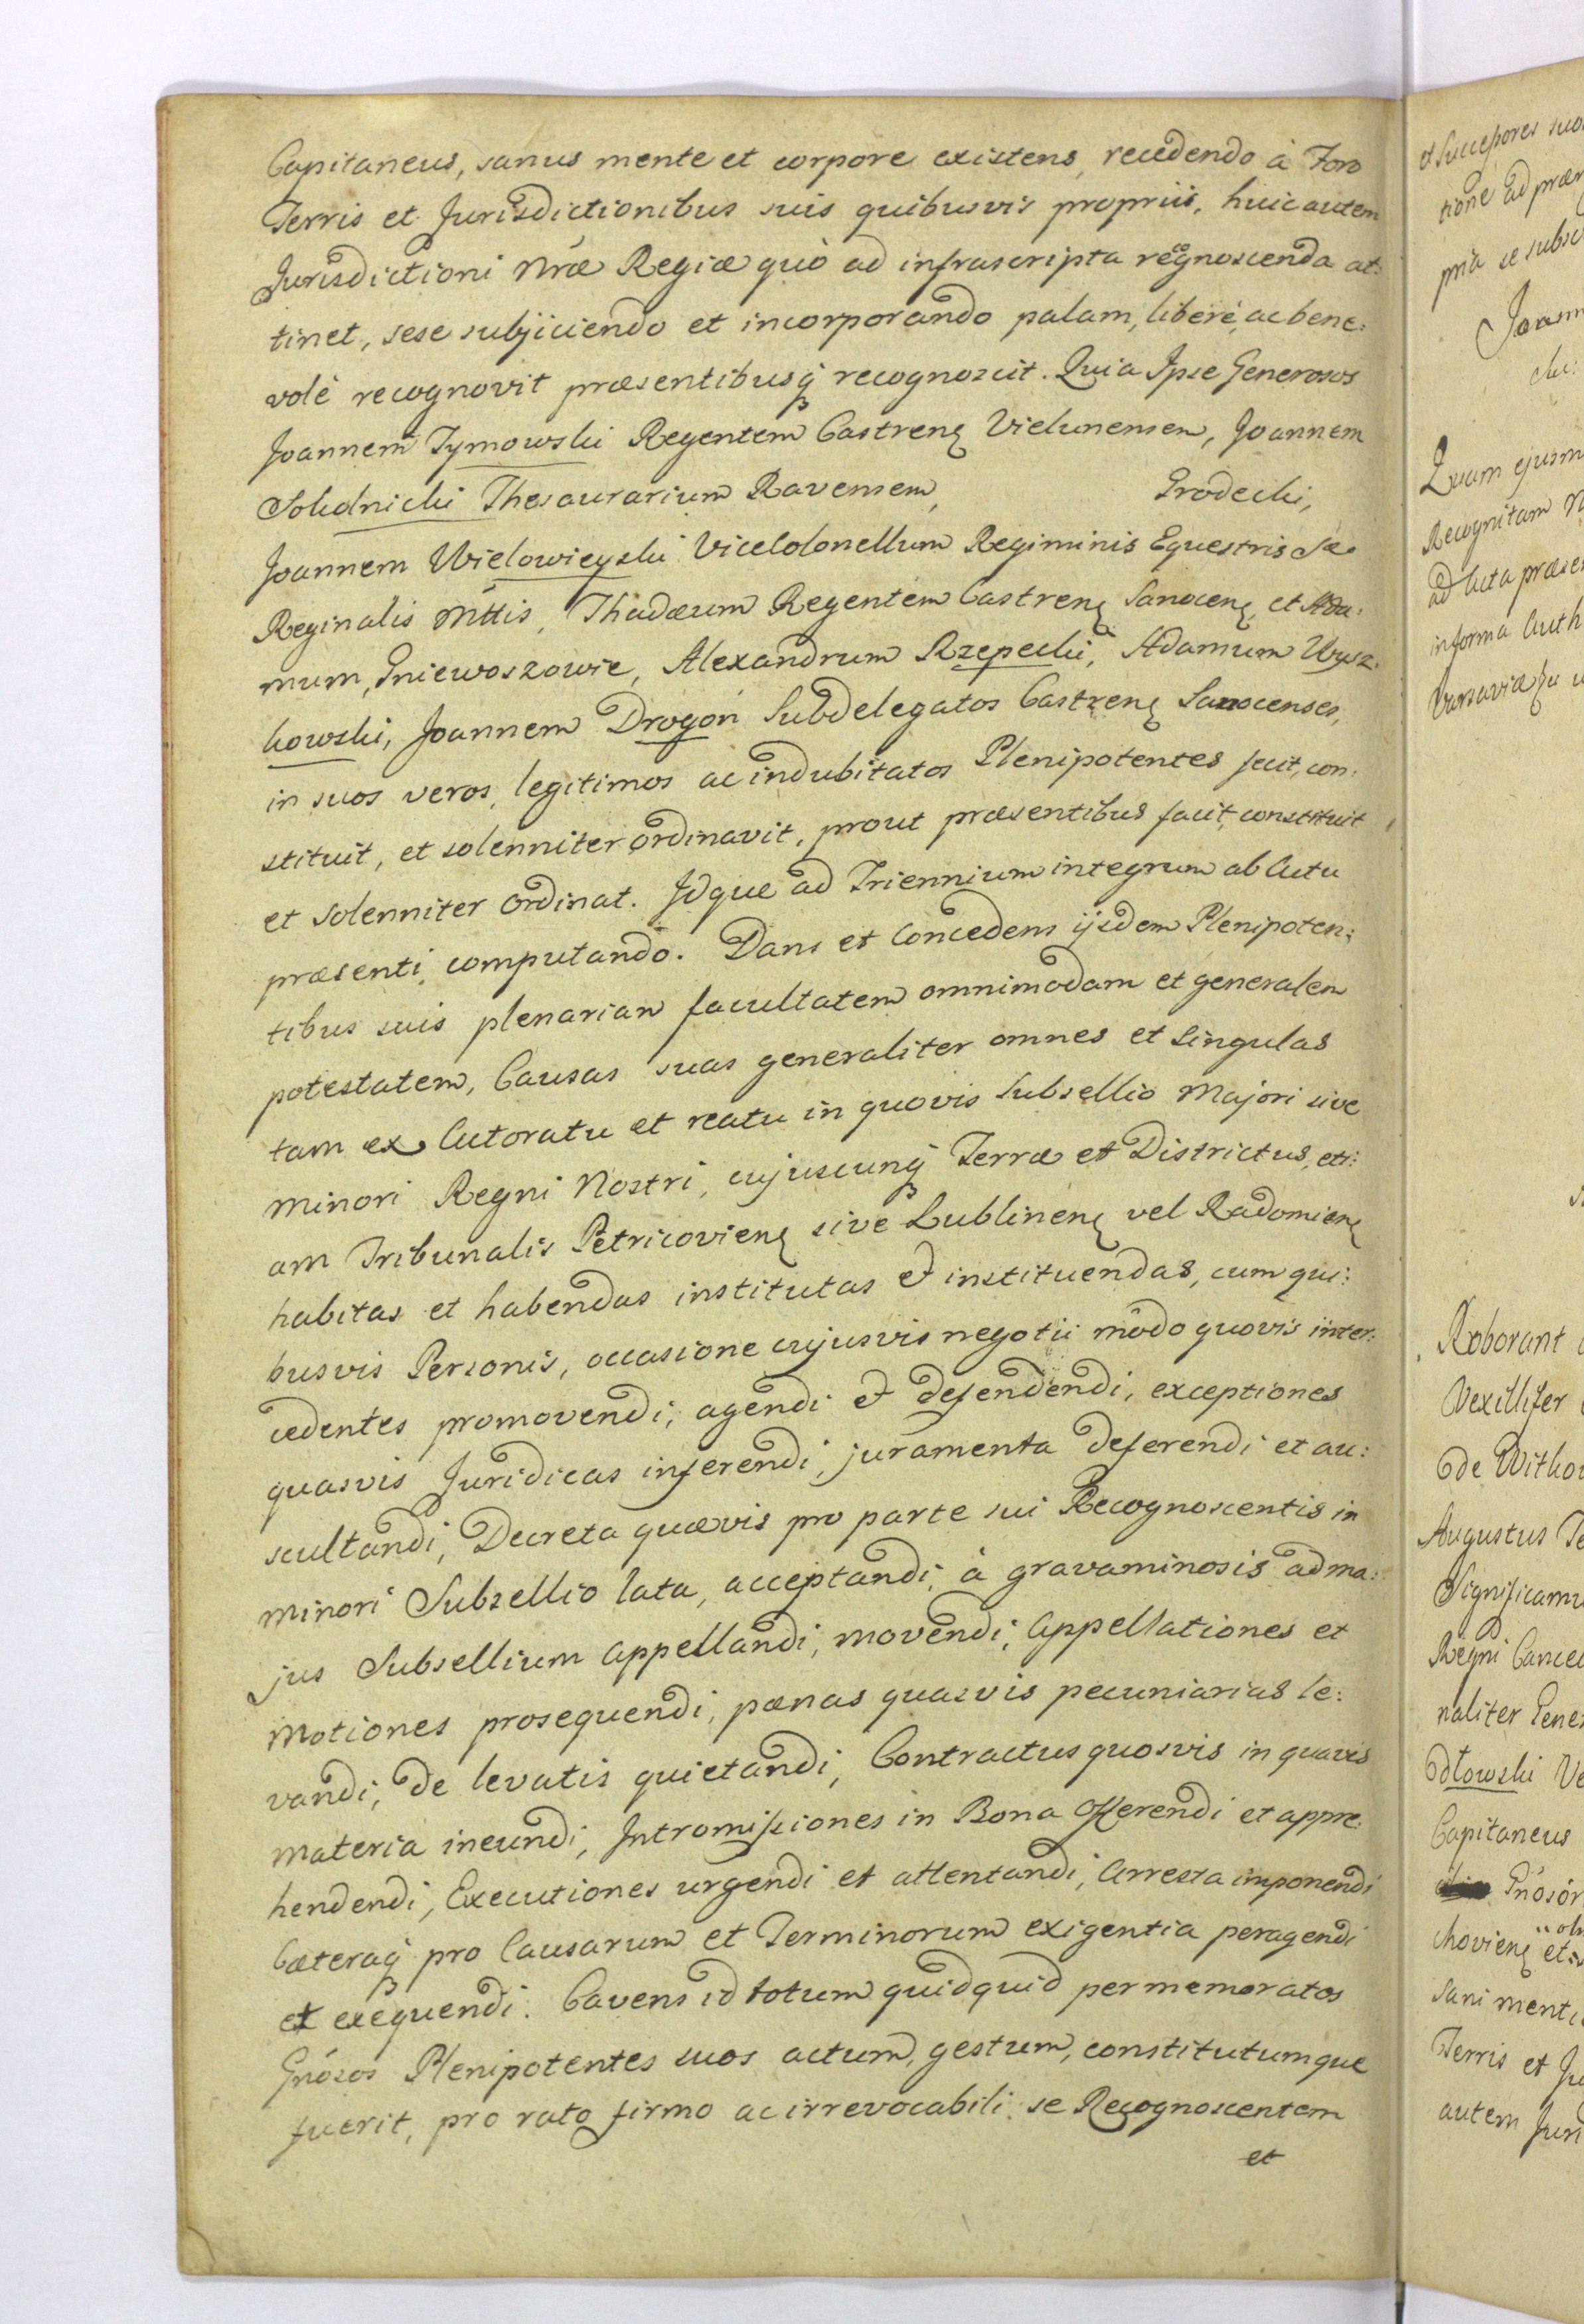 Capitaneus, sanus mente et corpore existens, recedendo à Foro
Terris et Jurisdictionibus suis quibusvis propriis, huic autem
Jurisdictioni Nrae Regiae quò ad infrascripta recognoscenda at:
tinet, sese subjiciendo et incorporando palam, liberè, ac bene:
volè recognovit praesentibusq recognoscit. Quia Ipse Generosos
Joannem Tymowski Regentem Castrens Vielunensem, Joannem
Sokolnicki Thesaurarium Ravensem, Grodecki,
Joannem Wielowieyski ViceColonellum Regiminis Equestris Sae
Reginalis Mttis, Thadaeum Regentem Castrens Sanocens, et Ada:
mum, Gniewoszowie, Alexandrum Rzepecki, Adamum Wysz:
kowski, Joannem Drogoń Subdelegatos Castrens Sanocenses,
in suos veros, legitimos ac indubitatos Plenipotentes fecit, con:
stituit, et solenniter ordinavit, prout praesentibus facit, constituit
et solenniter ordinat. Idque ad Triennium integrum ab Actu
praesenti computando. Dans et Concedens ijsdem Plenipoten:
tibus suis plenariam facultatem omnimodam et generalem
potestatem, Causas suas generaliter omnes et singulas
tam ex Actoratu et reatu in quovis Subsellio Majori sive
minori Regni Nostri, cujuscunq Terrae et Districtus, eti:
am Tribunalis Petricoviens sive Lublinens vel Radomiens
habitas et habendas institutas et instituendas, cum qui:
busvis Personis, occasione cujusvis negotii modo quovis inter:
cedentes promovendi, agendi et defendendi, exceptiones
quasvis Juridicas inferendi, juramenta deferendi et au:
scultandi, Decreta quaevis pro parte sui Recognoscentis in
minori Subsellio lata, acceptandi, à gravaminosis ad ma:
jus Subsellium appellandi, movendi, Appellationes et
Motiones prosequendi, paenas quasvis pecuniarias le:
vandi, de levatis quietandi, Contractus quosvis in quavis
materia ineundi, Intromissiones in Bona offerendi et appre:
hendendi, Executiones urgendi et attentandi, Arresta imponendi
Caeteraq pro Causarum et Terminorum exigentia peragendi
et exequendi. Cavens id totum quidquid per memoratos
Gnósos Plenipotentes suos actum, gestum, constitutumque
fuerit, pro rato firmo ac irrevocabili se Recognoscentem
et
et Successores suos
tione ad
pria se subsc
Joann
cki:
Quam ejusm
Recognitam N
ad Acta praese
in forma Auth
Varsaviae
Roborant
Vexillifer
de Witko
Augustus Te
Significamu
Regni Cancel
naliter Gene
dłowski Ve
Capitaneus
Gnósór
choviens et
sani mentis
Terris et Ju
autem Juri